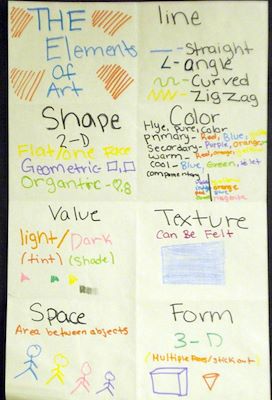 THE
Elements
Of
Art
line
— Straight
∠ - angle
Curved
Zig Zag
Shape
2-D
Flat/one Face
Geometric
Organtic -
Color
Hue, pure, color
primary - Red, Blue,
Secordary - Purple, orange,
warm - Red, orange, yellow
cool - Blue, Green, violet
orange
magenta
Value
light/Dark
(tint) (Shade)
Texture
Can Be Felt
Space
Area between objects
Form
3-D
(Multiple Faces/stick out)